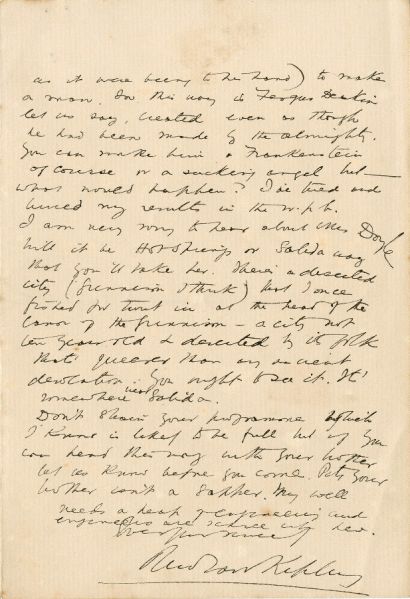 as it were being to the hand) to make
a man. In this way is Fergus
let us say, created even as though
he had been made by the almighty.
You can make him a Frankenstein
of course or a sucking angel but —
what would happen? I've tried and
buried my results in the w.p.b.
I am very sorry to hear about Mrs Doyle
will it be Hot Springs or Salida way
that you'll take her. There's a deserted
city (Gunnison I think) that I once
fished for trout in at the head of the
Canon of the Gunnison — a city not
ten years old & deserted by its folk
that's queerer than any ancient
desolation. You ought to see it. It's
somewhere near Salida.
Don't strain your programme which
I know is likely to be full but if you
can head this way with your brother
let us know before you come. Pity your
brother isn't a sapper. My well
needs a heap of engineering and
engineers are scarce up here.
Yours sincerely
Rudyard Kipling